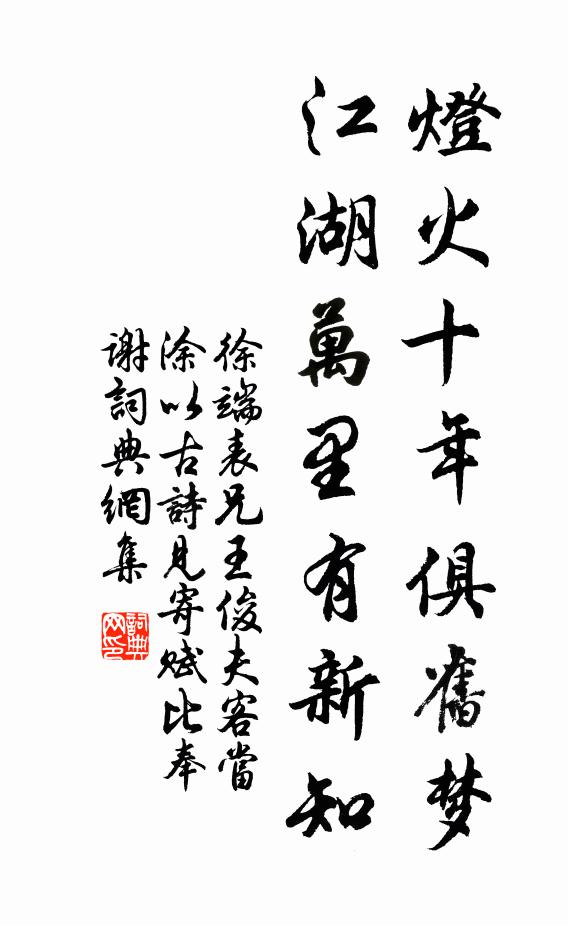 燈火十年俱舊梦
江湖萬里有新知
徐端表兄王俊夫客當
涂以古詩見寄賦比奉
謝詞典網集
詞典
网印